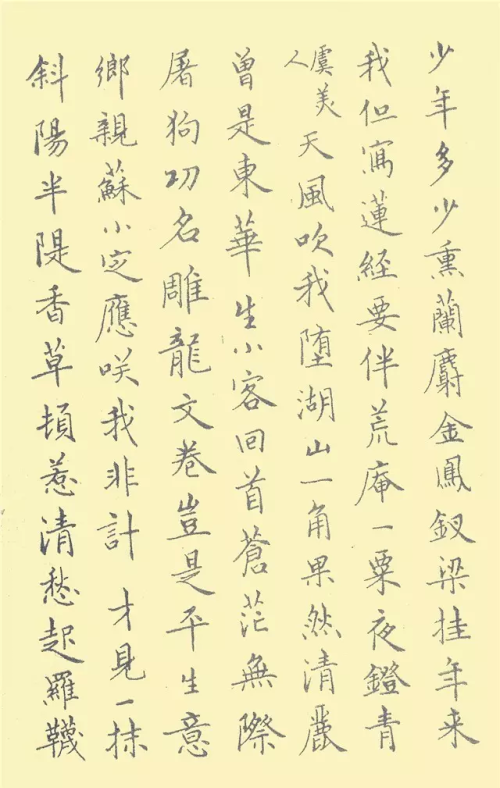 少年多少熏蘭麝金鳳釵梁挂年来
我但寫蓮經要伴荒庵一粟夜鐙青
虞美人天風吹我堕湖山一角果然清麗
曾是東華生小客回首蒼茫無際
屠狗功名雕龍文卷豈是平生意
鄉親蘇小定應咲我非計 才見一抹
斜陽半隄香草頓惹清愁起羅韈